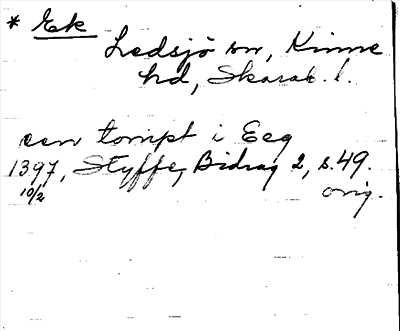 * Ek
Ledsjö sn, Kinne
hd, Skarab. l.
een tompt i Eeg
1397, Styffe, Bidrag 2, s. 49.
10/2 orig.